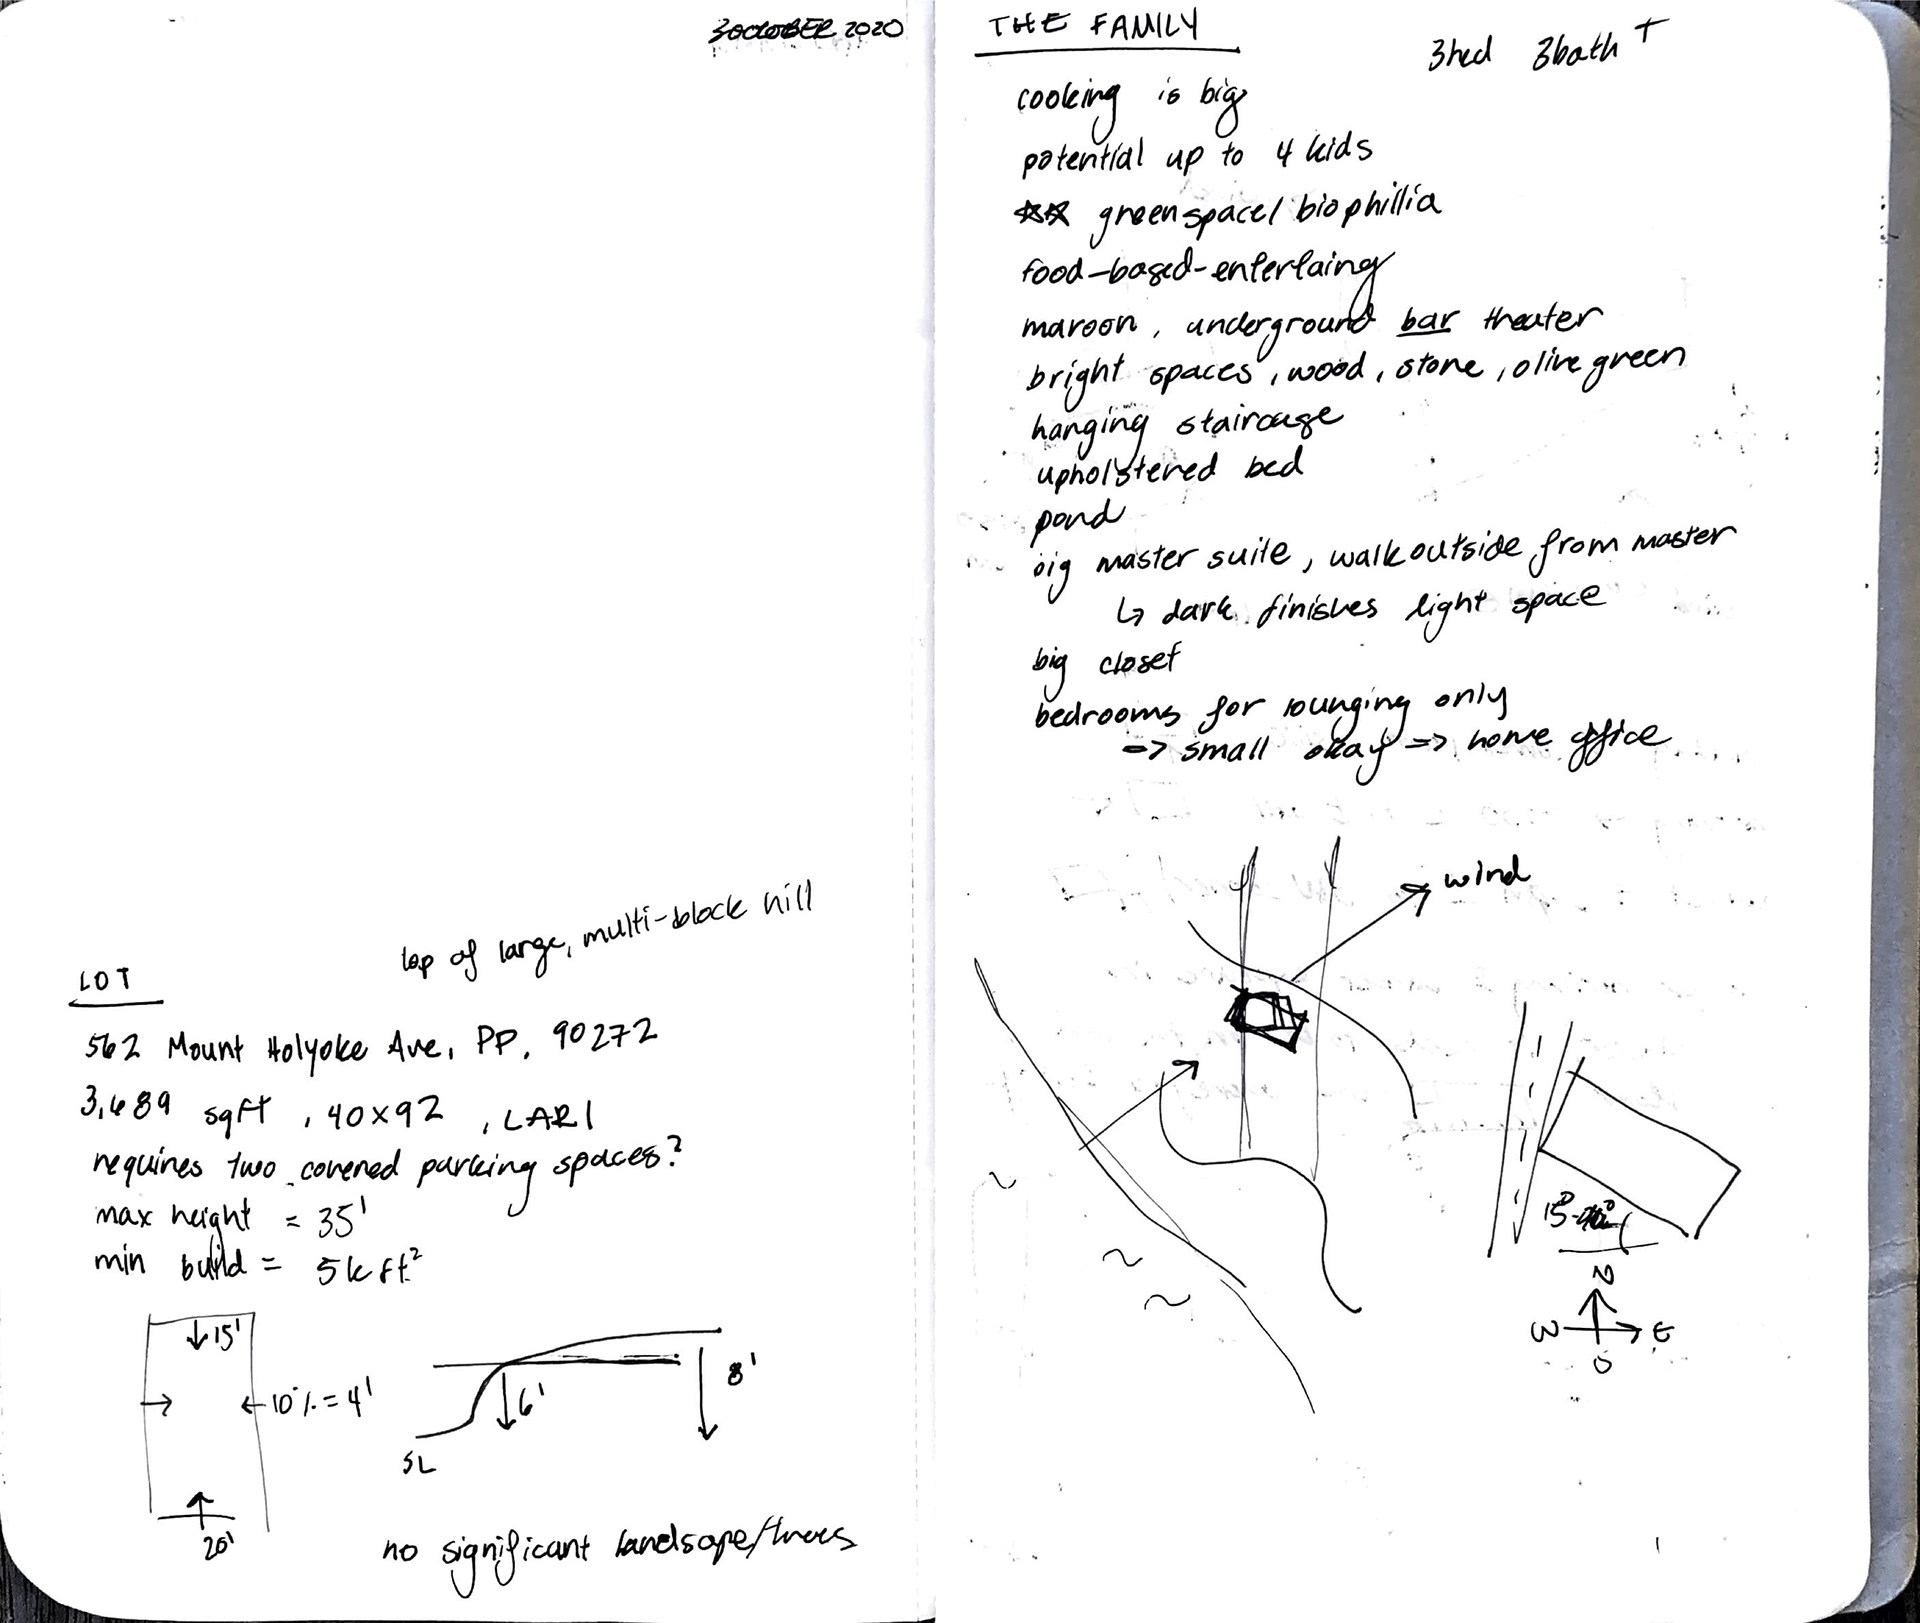 3 OCTOBER 2020
top of large, multi-block hill
LOT
562 Mount Holyoke Ave, PP, 90272
3,689 sqft, 40x92, LAR1
requires two covered parking spaces?
max height = 35'
min build = 5k ft²
↓15'
→ ← 10% = 4'
↑
20'
6'
8'
SL
no significant landscape/trees
THE FAMILY
3bed 3bath +
cooking is big
potential up to 4 kids
☆☆ greenspace/biophillia
food-based-entertaing
maroon, underground bar theater
bright spaces, wood, stone, olive green
hanging staircase
upholstered bed
pond
big master suite, walkoutside from master
↳ dark finishes light space
big closet
bedrooms for lounging only
=> small okay => home office
wind
N
W E
S
1